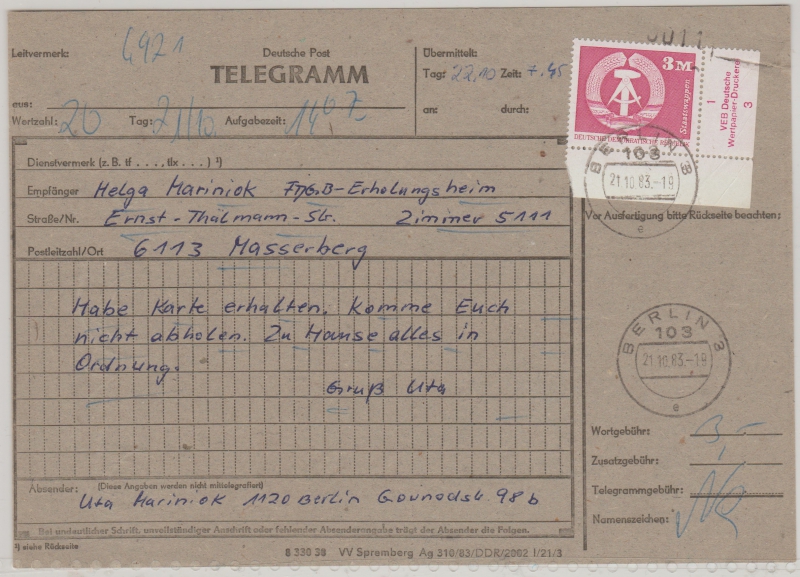 Leitvermerk:
4921
Deutsche Post
TELEGRAMM
Übermittelt:
Tag: 22.10 Zeit: 7.45
aus:
an: durch:
Wertzahl: 20 Tag: 21/10. Aufgabezeit: 1407
3 M
Staatswappen
DEUTSCHE DEMOKRATISCHE REPUBLIK
1
VEB Deutsche
Wertpapier-Druckerei
3
BERLIN 3
103
21.10.83.-19
e
Dienstvermerk (z. B. tf . . . , tlx . . . ) ¹)
Empfänger Helga Mariniok FDGB-Erholungsheim
Straße/Nr. Ernst-Thälmann-Str. Zimmer 5111
Postleitzahl/Ort 6113 Masserberg
Vor Ausfertigung bitte Rückseite beachten:
Habe Karte erhalten. Komme Euch
nicht abholen. Zu Hause alles in
Ordnung.
Gruß Uta
BERLIN 3
103
21.10.83.-19
e
Wortgebühr: 3,-
Zusatzgebühr:
Telegrammgebühr:
Namenszeichen:
Absender: (Diese Angaben werden nicht mittelegrafiert)
Uta Mariniok 1120 Berlin Gounodstr. 98 b
Bei undeutlicher Schrift, unvollständiger Anschrift oder fehlender Absenderangabe trägt der Absender die Folgen.
¹) siehe Rückseite
8 330 30 VV Spremberg Ag 310/83/DDR/2002 I/21/3